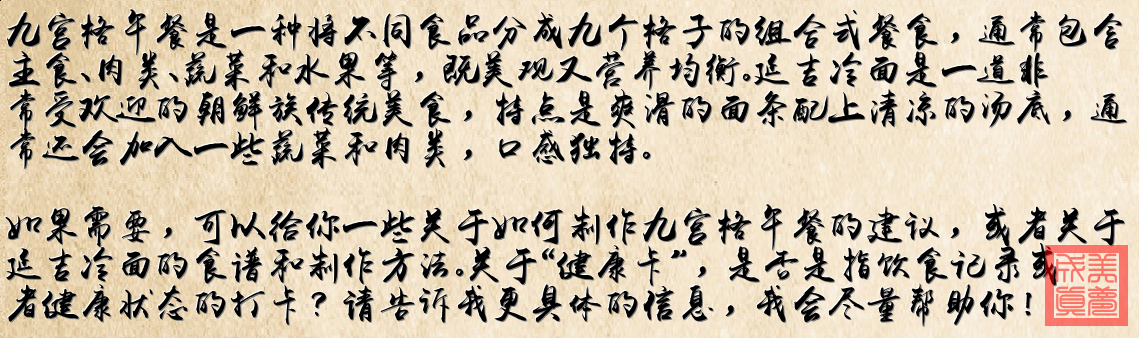 九宫格午餐是一种将不同食品分成九个格子的组合式餐食，通常包含
主食、肉类、蔬菜和水果等，既美观又营养均衡。延吉冷面是一道非
常受欢迎的朝鲜族传统美食，特点是爽滑的面条配上清凉的汤底，通
常还会加入一些蔬菜和肉类，口感独特。
如果需要，可以给你一些关于如何制作九宫格午餐的建议，或者关于
延吉冷面的食谱和制作方法。关于“健康卡”，是否是指饮食记录或
者健康状态的打卡？请告诉我更具体的信息，我会尽量帮助你！
美梦
成真